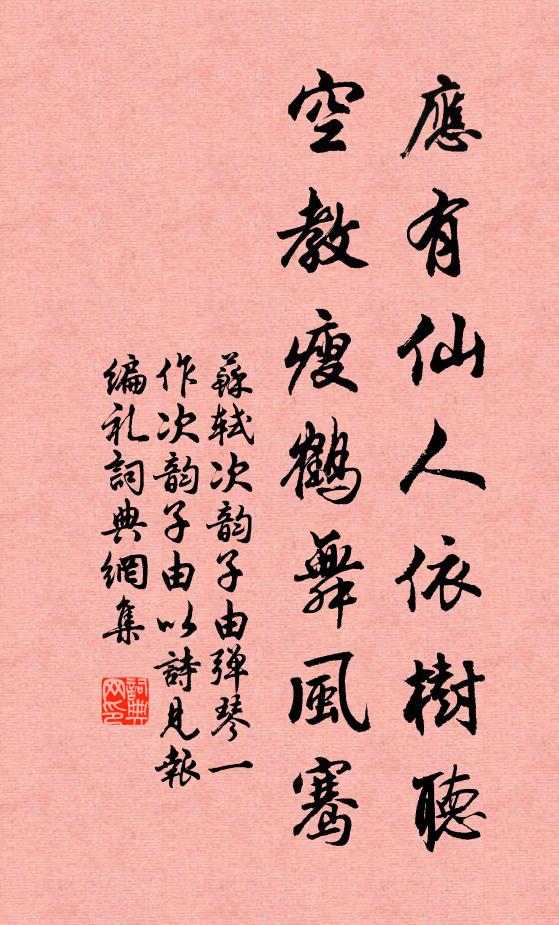 應有仙人依樹聽
空教瘦鶴舞風騫
蘇軾次韵子由弹琴一
作次韵子由以詩見報
編礼詞典網集
詞典
网印